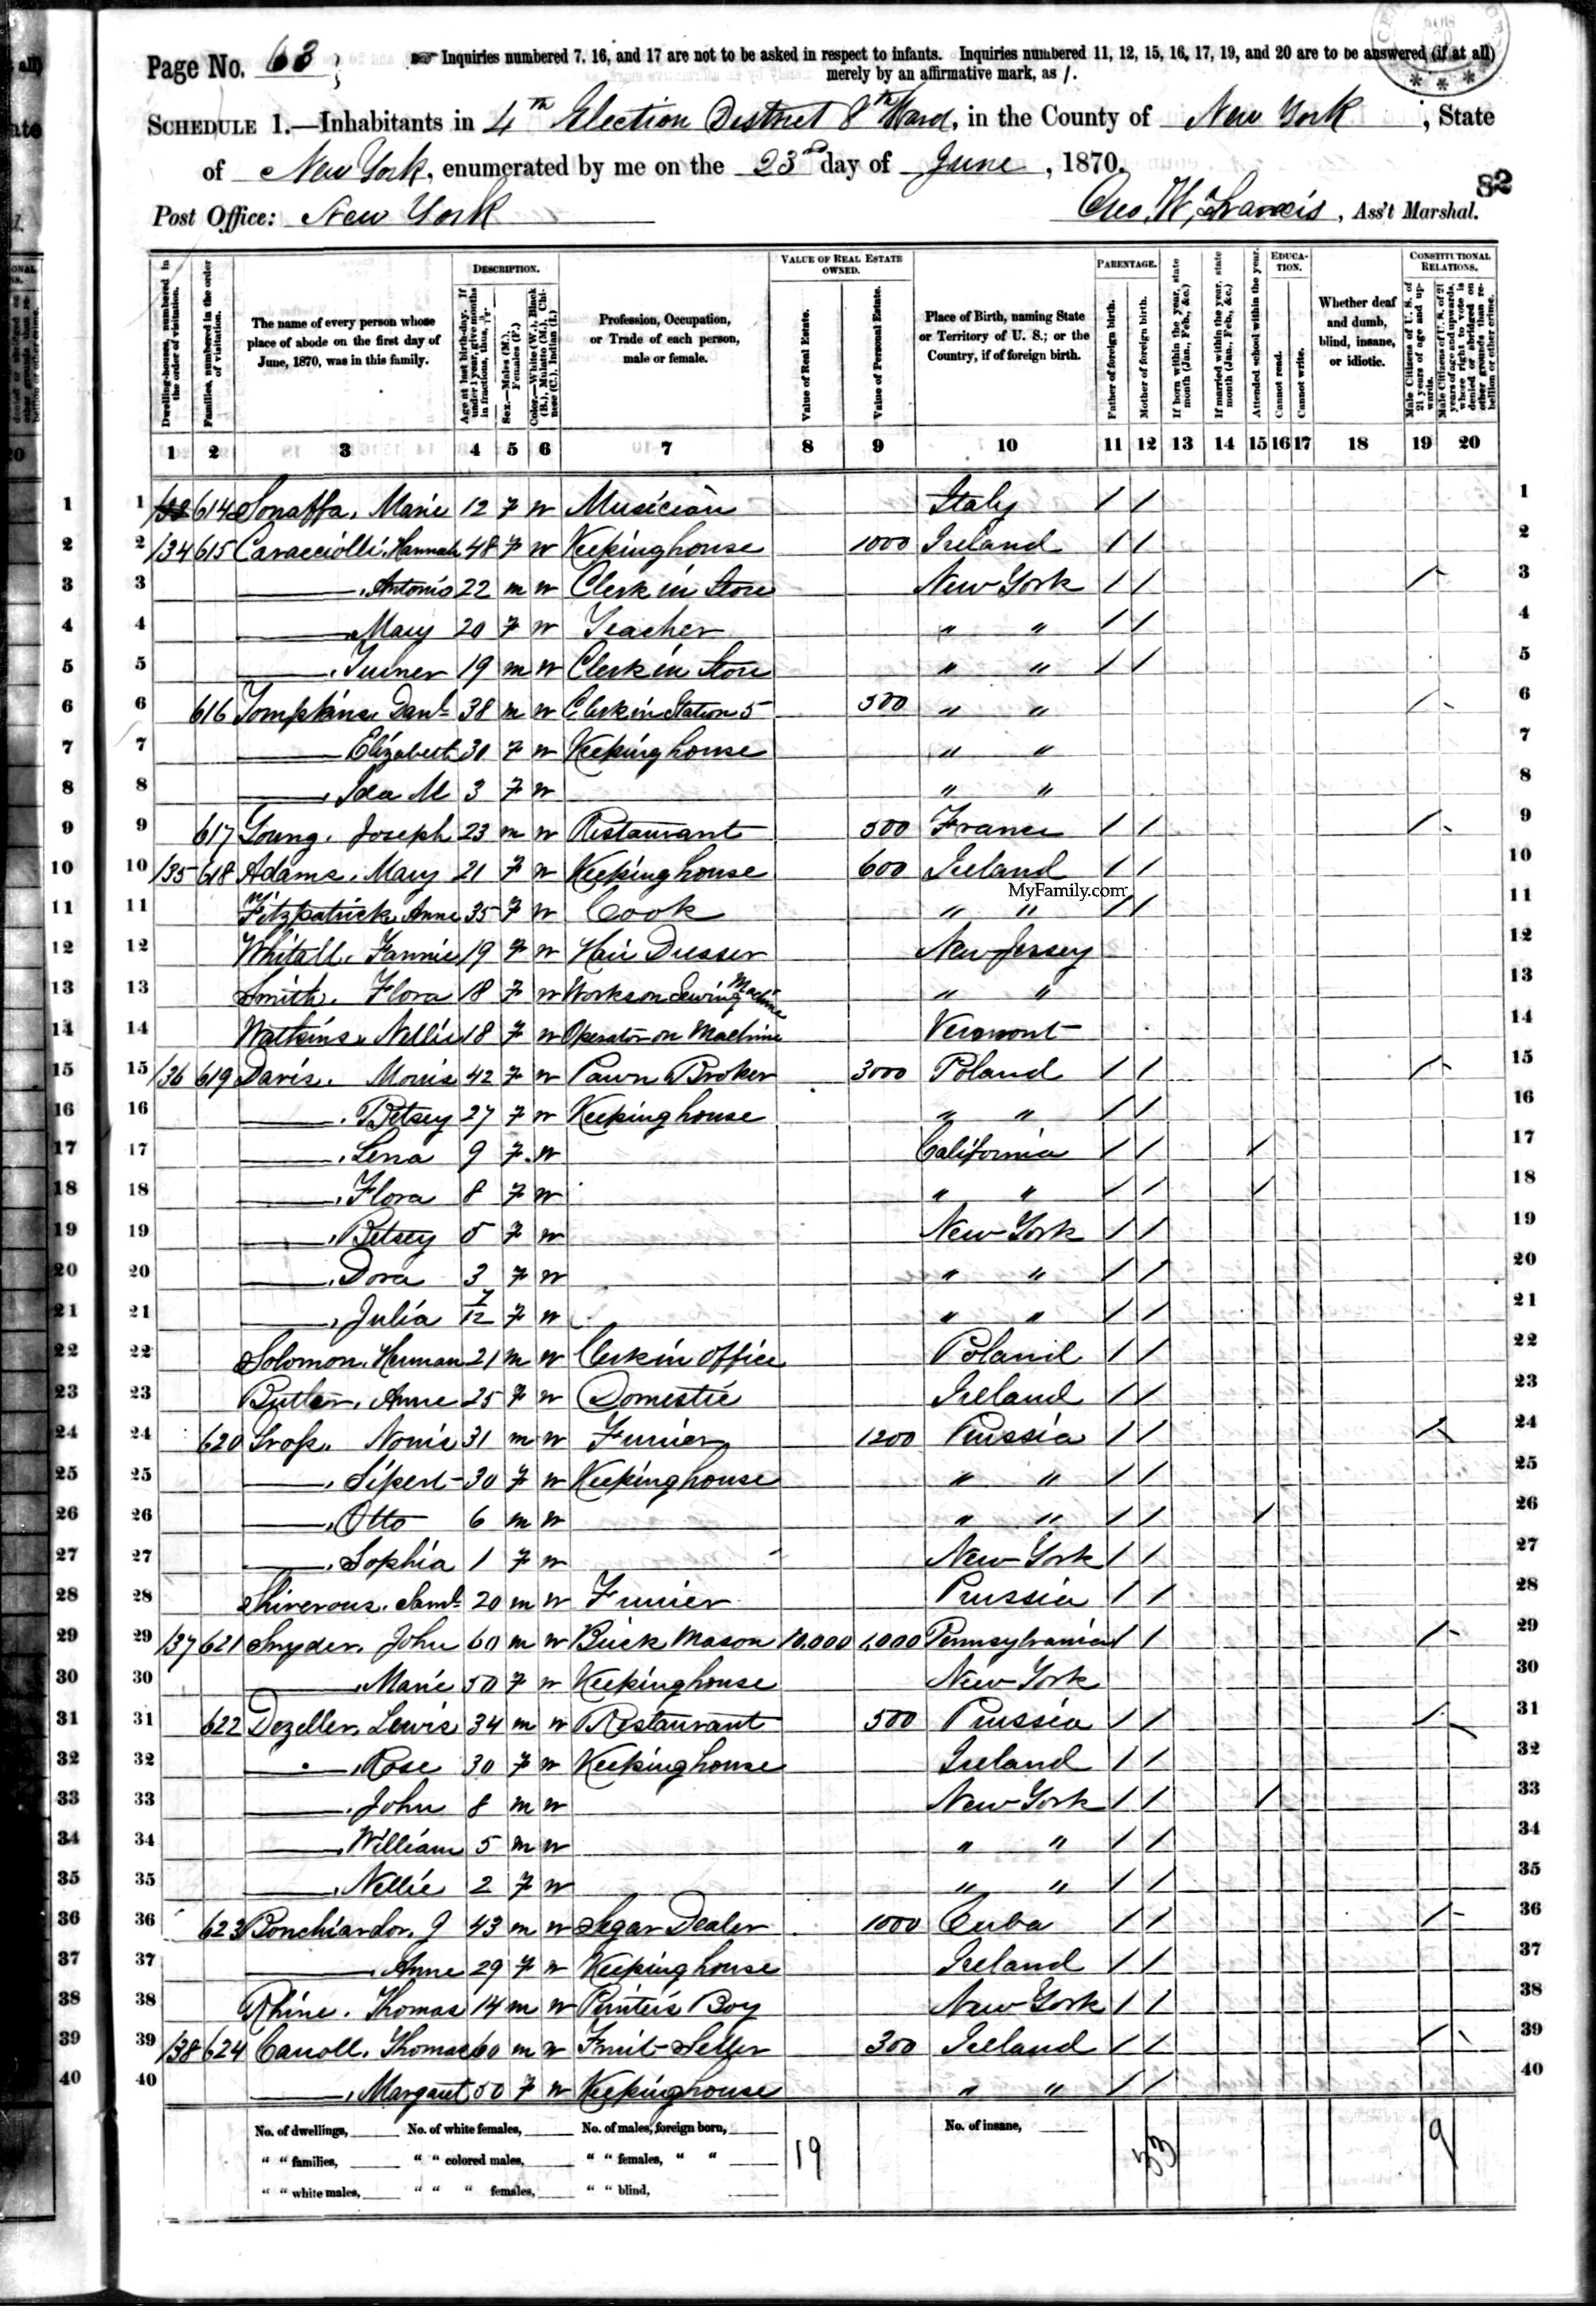 Page No. 63
☞ Inquiries numbered 7, 16, and 17 are not to be asked in respect to infants. Inquiries numbered 11, 12, 15, 16, 17, 19, and 20 are to be answered (if at all)
merely by an affirmative mark, as /.
SCHEDULE 1.—Inhabitants in 4th Election District 8th Ward, in the County of New York, State
of New York, enumerated by me on the 23rd day of June, 1870.
82
Post Office: New York
Geo. W. Francis, Ass't Marshal.
Dwelling-houses, numbered in the order of visitation.
Families, numbered in the order of visitation.
The name of every person whose place of abode on the first day of June, 1870, was in this family.
DESCRIPTION.
Age at last birth-day. If under 1 year, give months in fractions, thus, 3/12.
Sex.—Males (M.), Females (F.)
Color.—White (W.), Black (B.), Mulatto (M.), Chinese (C.), Indian (I.)
Profession, Occupation, or Trade of each person, male or female.
VALUE OF REAL ESTATE OWNED.
Value of Real Estate.
Value of Personal Estate.
Place of Birth, naming State or Territory of U. S.; or the Country, if of foreign birth.
PARENTAGE.
Father of foreign birth.
Mother of foreign birth.
If born within the year, state month (Jan., Feb., &c.)
If married within the year, state month (Jan., Feb., &c.)
Attended school within the year.
EDUCATION.
Cannot read.
Cannot write.
Whether deaf and dumb, blind, insane, or idiotic.
CONSTITUTIONAL RELATIONS.
Male Citizens of U. S. of 21 years of age and upwards.
Male Citizens of U. S. of 21 years of age and upwards, whose right to vote is denied or abridged on other grounds than rebellion or other crime.
1 2 3 4 5 6 7 8 9 10 11 12 13 14 15 16 17 18 19 20
1 614 Marie 12 F W Musician Italy / / 1
2 134 615 Caracciolli, Hannah 48 F W Keeping house 1000 Ireland / / 2
3 ——, Antonio 22 M W Clerk in Store New York / / / 3
4 ——, Mary 20 F W Teacher " " / / 4
5 ——, Turner 19 M W Clerk in Store " " / / 5
6 616 Tompkins, Danl 38 M W Clerk in Station 5 500 " " / 6
7 ——, Elizabeth 30 F W Keeping house " " 7
8 ——, Ida M 3 F W " " 8
9 617 Young, Joseph 23 M W Restaurant 500 France / / / 9
10 135 618 Adams, Mary 21 F W Keeping house 600 Ireland / / 10
MyFamily.com
11 Fitzpatrick, Anne 35 F W Cook " " / / 11
12 Whitall, Fannie 19 F W Hair Dresser New Jersey 12
13 Smith, Flora 18 F W Works on Sewing Machine " " 13
14 Watkins, Nellie 18 F W Operator on Machine Vermont 14
15 136 619 Davis, Morris 42 F W Pawn Broker 3000 Poland / / / 15
16 ——, Betsey 27 F W Keeping house " " / / 16
17 ——, Lena 9 F W California / / / 17
18 ——, Flora 8 F W " " / / / 18
19 ——, Betsey 5 F W New York / / 19
20 ——, Dora 3 F W " " / / 20
21 ——, Julia 7/12 F W " " / / 21
22 Solomon, Herman 21 M W Clerk in Office Poland / / 22
23 Butler, Anne 25 F W Domestic Ireland / / 23
24 620 31 M W Furrier 1200 Prussia / / / 24
25 —— 30 F W Keeping house " " / / 25
26 ——, Otto 6 M W " " / / / 26
27 ——, Sophia 1 F W New York / / 27
28 Saml 20 M W Furrier Prussia / / 28
29 137 621 Snyder, John 60 M W Brick Mason 10,000 1,000 Pennsylvania / / / 29
30 ——, Marie 50 F W Keeping house New York 30
31 622 Dezeller, Lewis 34 M W Restaurant 500 Prussia / / / 31
32 ——, Rose 30 F W Keeping house Ireland / / 32
33 ——, John 8 M W New York / / / 33
34 ——, William 5 M W " " / / 34
35 ——, Nellie 2 F W " " / / 35
36 623 Bonchiardor, J 43 M W Segar Dealer 1000 Cuba / / / 36
37 ——, Anne 29 F W Keeping house Ireland / / 37
38 Rhine, Thomas 14 M W Printers Boy New York / / 38
39 138 624 Carroll, Thomas 60 M W Fruit Seller 300 Ireland / / / 39
40 ——, Margaret 50 F W Keeping house " " / / 40
No. of dwellings, No. of white females, No. of males, foreign born, No. of insane,
" " families, " " colored males, " " females, " " 19 33 9
" " white males, " " " females, " " blind,